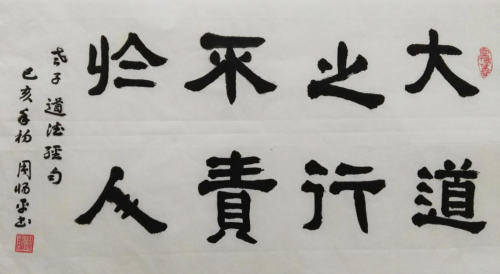 大道
之行
不責
於人
老子 道德經句
己亥年初 周平书